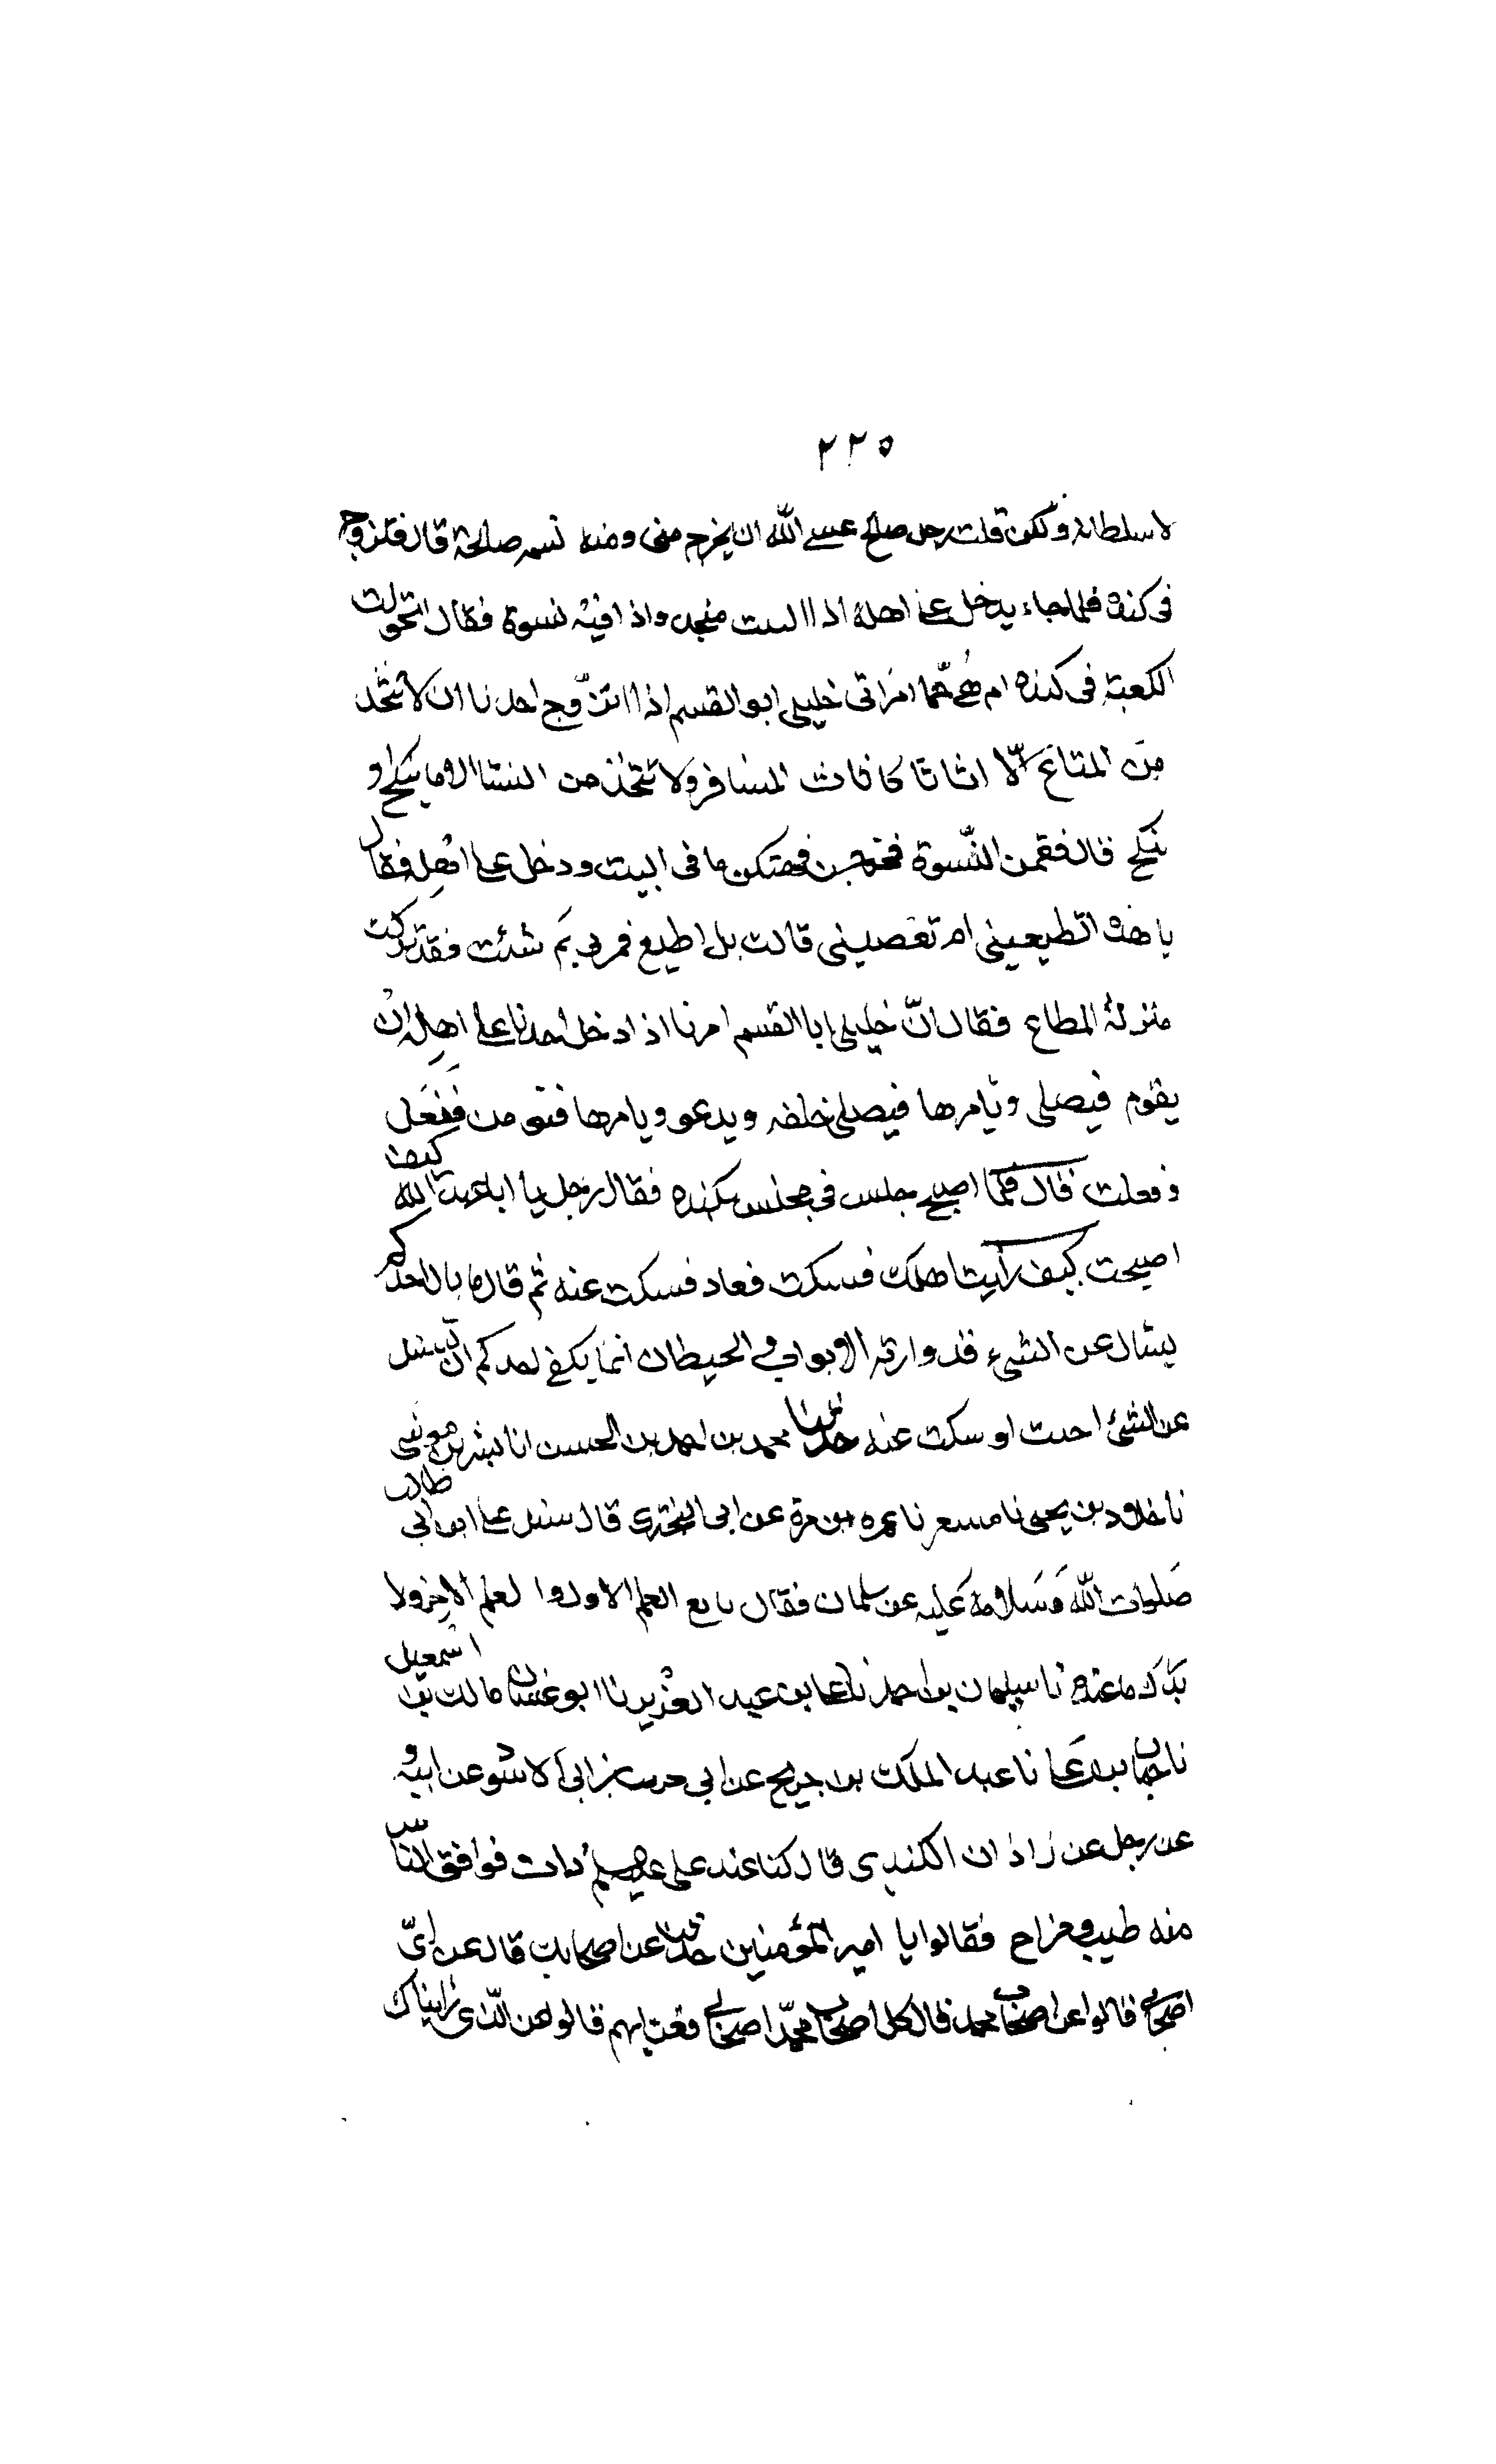 ٢٢٥
لا سلطانه ولكن قلت رجل صالح عسى الله ان يخرج منى ومنه نسمه صالحة قال فتزوج
فى كنده فلما جاء يدخل على اهله اذا البيت منجد واذا فيه نسوة فقال اتحولت
الكعبة فى كنده ام هى حمّا امرنى خليلى ابو القسم اذا تزوج احدنا ان لا يتخذ
من المتاع الّا اثاثا كاثاث المسافر ولا يتخذ من النساء الا ما ينكح او
ينكح قال فقمن النّسوة فخرجن فهتكن ما فى البيت ودخل على اهله فقال
يا هذه اتطيعينى ام تعصينى قالت بل اطيع فمرنى بم شئت فقد نزلت
منزلة المطاع فقال انّ خليلى ابا القسم امرنا اذا دخل احدنا على اهله ان
يقوم فيصلى ويامرها فيصلى خلفه ويدعو ويامرها فتومن ففعل
وفعلت قال فلما اصبح جلس فى مجلس كنده فقال رجل يا ابا عبد الله كيف
اصبحت كيف رايت اهلك فسكت فعاد فسكت عنه ثم قال ما بال احدكم
يسال عن الشىء قد وارته الابواب والحيطان انما يكفى احدكم ان يسئل
عن الشئ اجيب او سكت عنه حدثنا محمد بن احمد بن الحسن انا بشر بن موسى
نا خلاد بن يحيى نا مسعر نا عمرو بن مرة عن ابى البخترى قال سئل على ابن ابى طالب
صلوات الله وسلامه عليه عن سلمان فقال تابع العلم الاول والعلم الاخر ولا
يدرك ما عنده نا سليمان بن احمد نا على بن عبد العزيز نا ابو غسان مالك بن اسمعيل
نا حبان بن على نا عبد الملك بن جريج عن ابى حرب بن ابى الاسود عن ابيه و
عن رجل عن زاذان الكندى قال كنا عند على عليه السلم ذات فوافق الناس
منه طيب ومزاح فقالوا يا امير المؤمنين حدثنا عن اصحابك قال عن اىّ
اصحابى قالوا عن اصحاب محمد قال كل اصحاب محمّد اصحابى فعن ايهم قالوا عن الذى رايناك